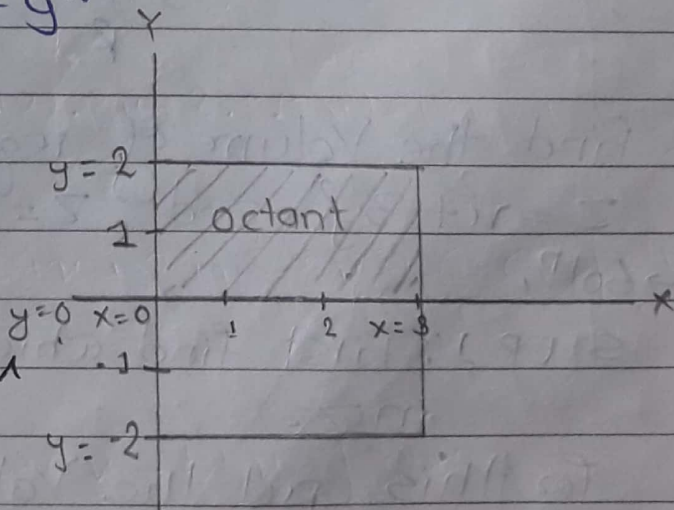 y
Y
y = 2
octant
1
y=0 x=0 1 2 x=3 X
-1
y= -2